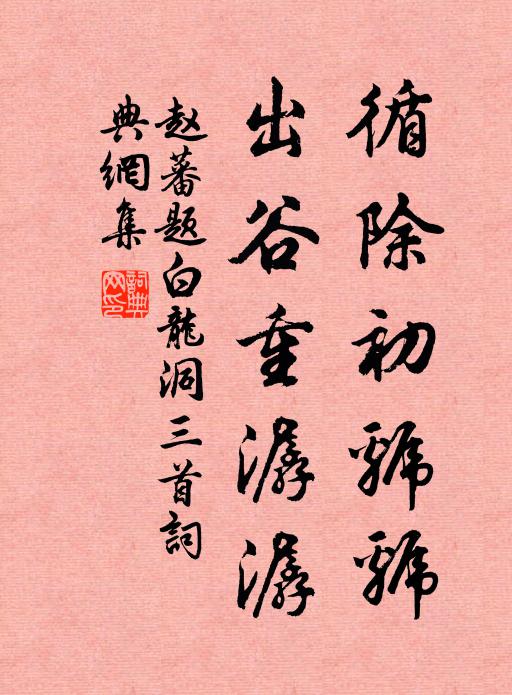 循除初虢虢
出谷重潺潺
赵蕃题白龍洞三首詞
典網集
詞典網印